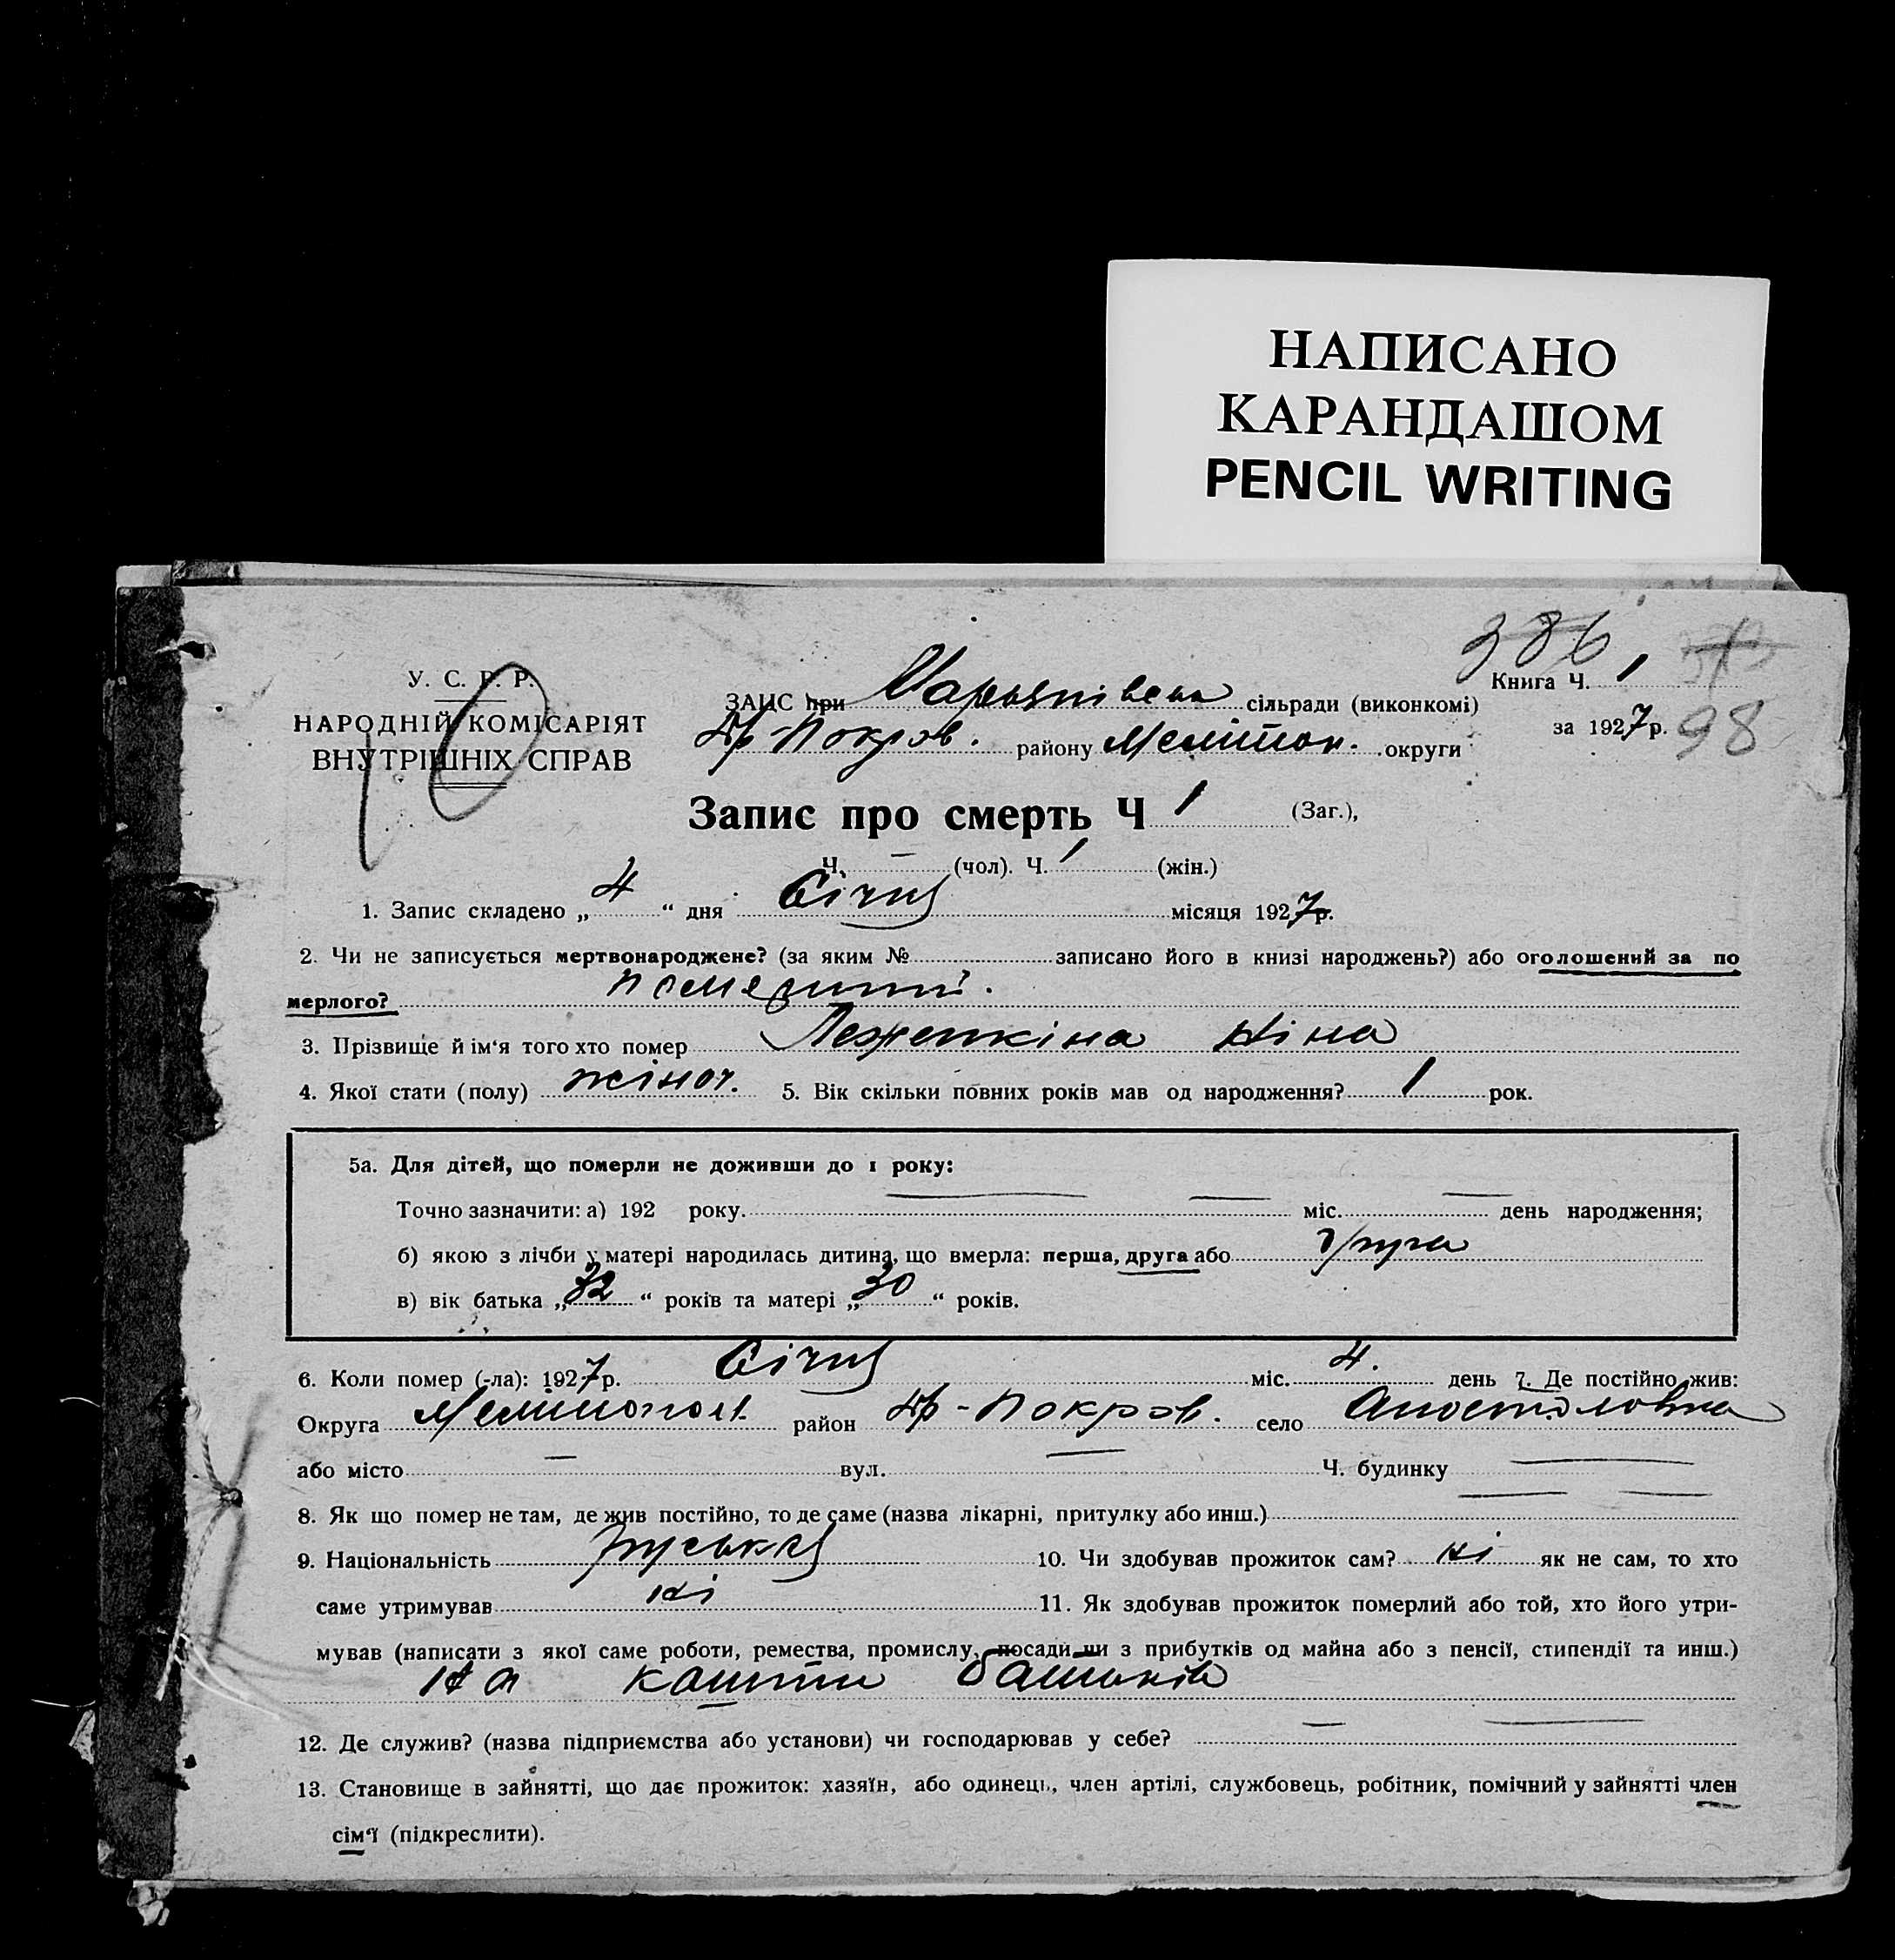 НАПИСАНО
КАРАНДАШОМ
PENCIL WRITING
386
98
10
У. С. Р. Р.
НАРОДНІЙ КОМІСАРІЯТ
ВНУТРІШНІХ СПРАВ
ЗАЦС при сільради (виконкомі)
Др-Покров. району Мелітоп. округи
Книга Ч. 1
за 1927 р.
Запис про смерть Ч 1 (Заг.),
Ч. — (чол). Ч. 1 (жін.)
1. Запис складено „ 4 “ дня Січня місяця 1927 р.
2. Чи не записується мертвонароджене? (за яким № записано його в книзі народжень?) або оголошений за по
мерлого?
3. Прізвище й ім‘я того хто помер Лежепкіна Ніна
4. Якої стати (полу) жіноч. 5. Вік скільки повних років мав од народження? 1 рок.
5а. Для дітей, що померли не доживши до 1 року:
Точно зазначити: а) 192 року. — — міс. — день народження;
б) якою з лічби у матері народилась дитина, що вмерла: перша, друга або друга
в) вік батька „ 32 “ років та матері „ 30 “ років.
6. Коли помер (-ла): 1927 р. Січня міс. 4. день 7. Де постійно жив:
Округа Мелітопол. район Др-Покров. село Апостоловка
або місто — вул. — Ч. будинку —
8. Як що помер не там, де жив постійно, то де саме (назва лікарні, притулку або инш.) — —
9. Національність руська 10. Чи здобував прожиток сам? ні як не сам, то хто
саме утримував ні 11. Як здобував прожиток померлий або той, хто його утри-
мував (написати з якої саме роботи, ремества, промислу, посади чи з прибутків од майна або з пенсії, стипендії та инш.)
на кошти батьків
12. Де служив? (назва підприємства або установи) чи господарював у себе? — —
13. Становище в зайнятті, що дає прожиток: хазяїн, або одинець, член артілі, службовець, робітник, помічний у зайнятті член
сім‘ї (підкреслити).